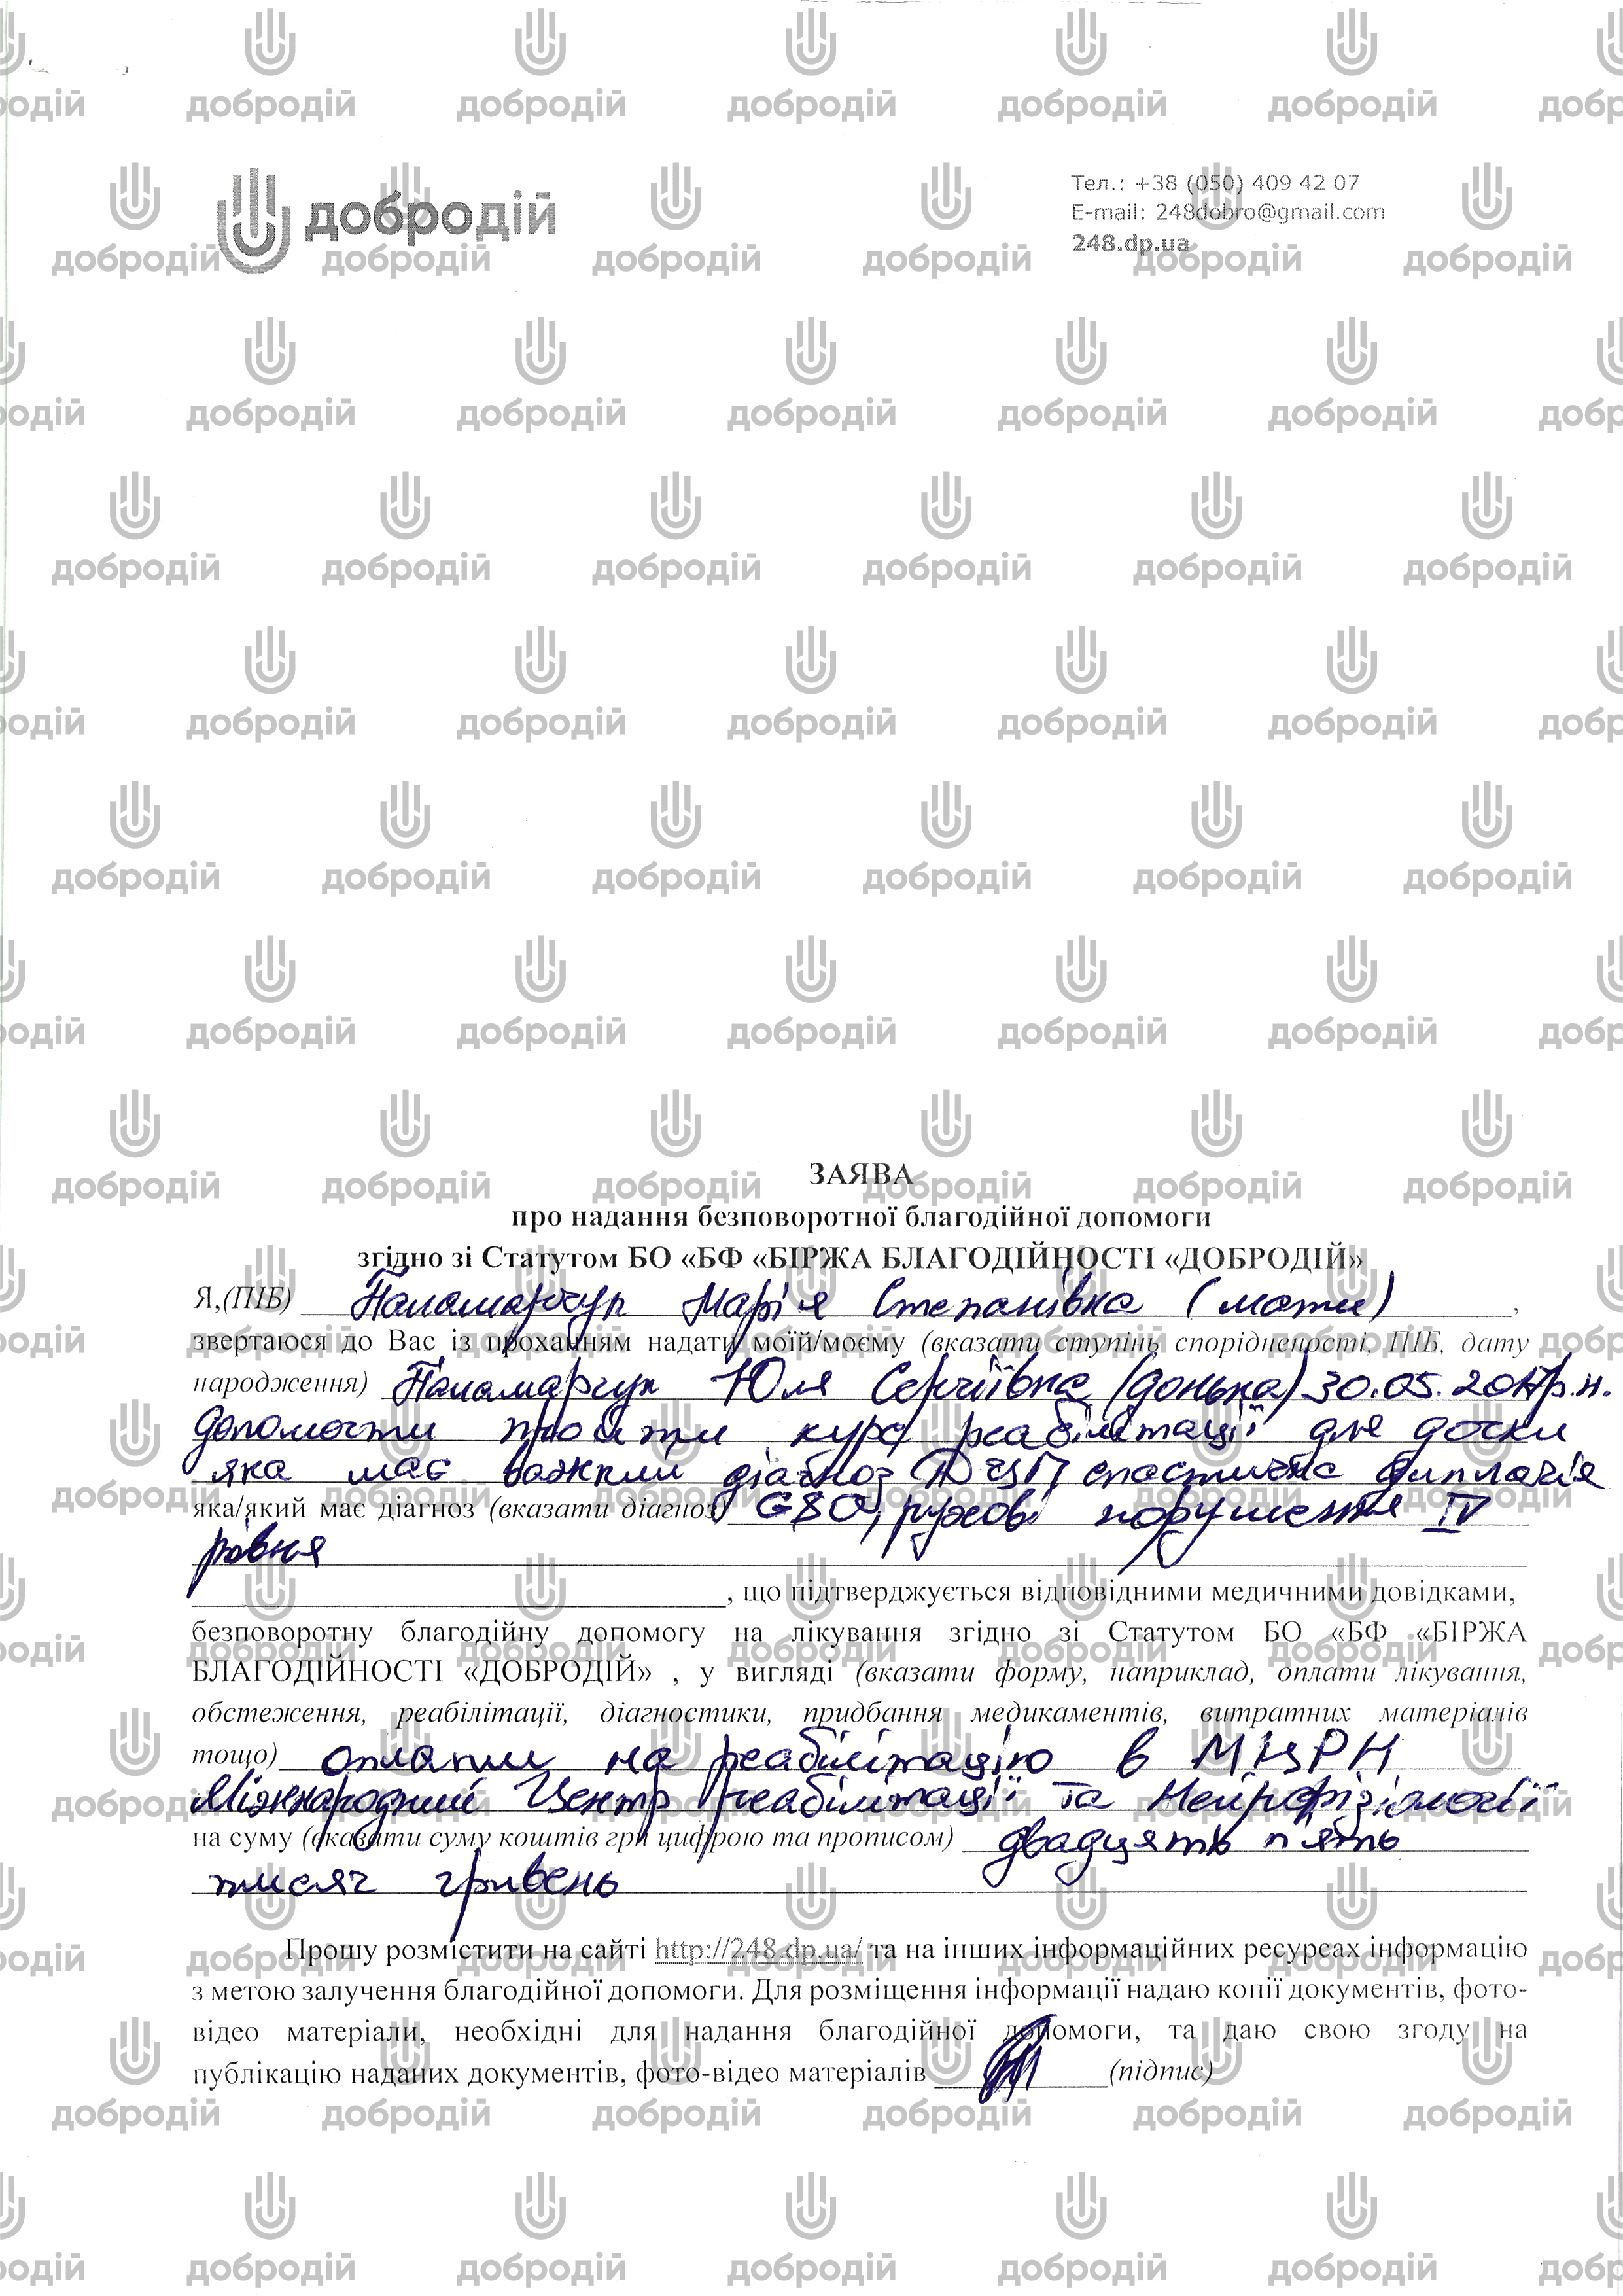 добродій
Тел.: +38 (050) 409 42 07
E-mail: 248dobro@gmail.com
248.dp.ua
ЗАЯВА
про надання безповоротної благодійної допомоги
згідно зі Статутом БО «БФ «БІРЖА БЛАГОДІЙНОСТІ «ДОБРОДІЙ»
Я,(ПІБ) Паламарчук Марія Степанівна (мати),
звертаюся до Вас із проханням надати моїй/моєму (вказати ступінь спорідненості, ПІБ, дату
народження) Паламарчук Юля Сергіївна (донька) 30.05. р.н.
допомогти пройти курс реабілітації для дочки
яка має важкий діагноз ДЦП спастична диплегія
яка/який має діагноз (вказати діагноз) G80, рухові порушення IV
рівня
, що підтверджується відповідними медичними довідками,
безповоротну благодійну допомогу на лікування згідно зі Статутом БО «БФ «БІРЖА
БЛАГОДІЙНОСТІ «ДОБРОДІЙ» , у вигляді (вказати форму, наприклад, оплати лікування,
обстеження, реабілітації, діагностики, придбання медикаментів, витратних матеріалів
тощо) оплати на реабілітацію в МЦРН
Міжнародний Центр реабілітації та Нейрофізіології
на суму (вказати суму коштів грн цифрою та прописом) двадцять п'ять
тисяч гривень
Прошу розмістити на сайті http://248.dp.ua/ та на інших інформаційних ресурсах інформацію
з метою залучення благодійної допомоги. Для розміщення інформації надаю копії документів, фото-
відео матеріали, необхідні для надання благодійної допомоги, та даю свою згоду на
публікацію наданих документів, фото-відео матеріалів (підпис)